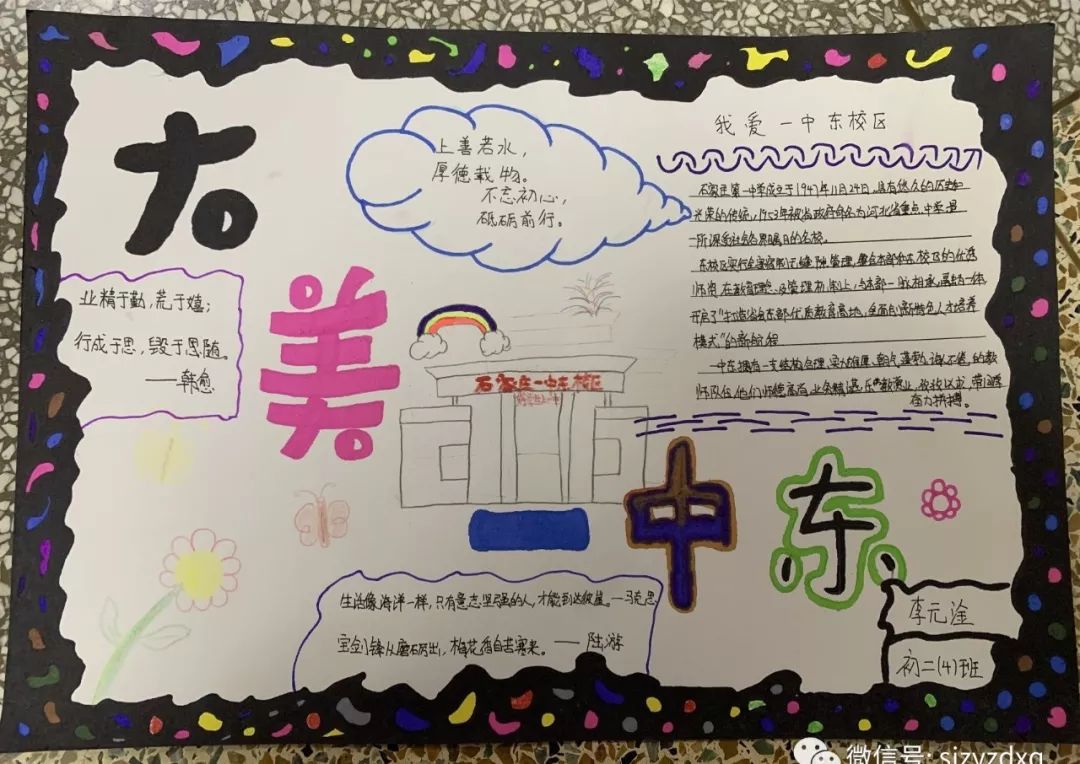 大
美
中
东
上善若水，
厚德载物。
不忘初心，
砥砺前行。
业精于勤，荒于嬉；
行成于思，毁于思随。
——韩愈
石家庄一中东校区
我爱一中东校区
石家庄第一中学成立于1947年11月24日，具有悠久的历史和
光荣的传统，1953年被省政府命名为河北省重点中学，是
一所深受社会各界瞩目的名校。
东校区实行全寄宿制，
师资，在教育理念及管理机制上，与本部一脉相承，融为一体，
开启了“打造省会东部优质教育高地，全面创新特色人才培养
模式”的新阶段
一中东拥有一支结构合理、实力雄厚、朝气蓬勃、诲人不倦的教
师队伍，他们师德高尚，业务精湛，乐
奋力拼搏。
生活像海洋一样，只有意志坚强的人，才能到达彼岸。—马克思
宝剑锋从磨砺出，梅花香自苦寒来。——陆游
李元淦
初二(4)班
微信号: sjzyzdxq